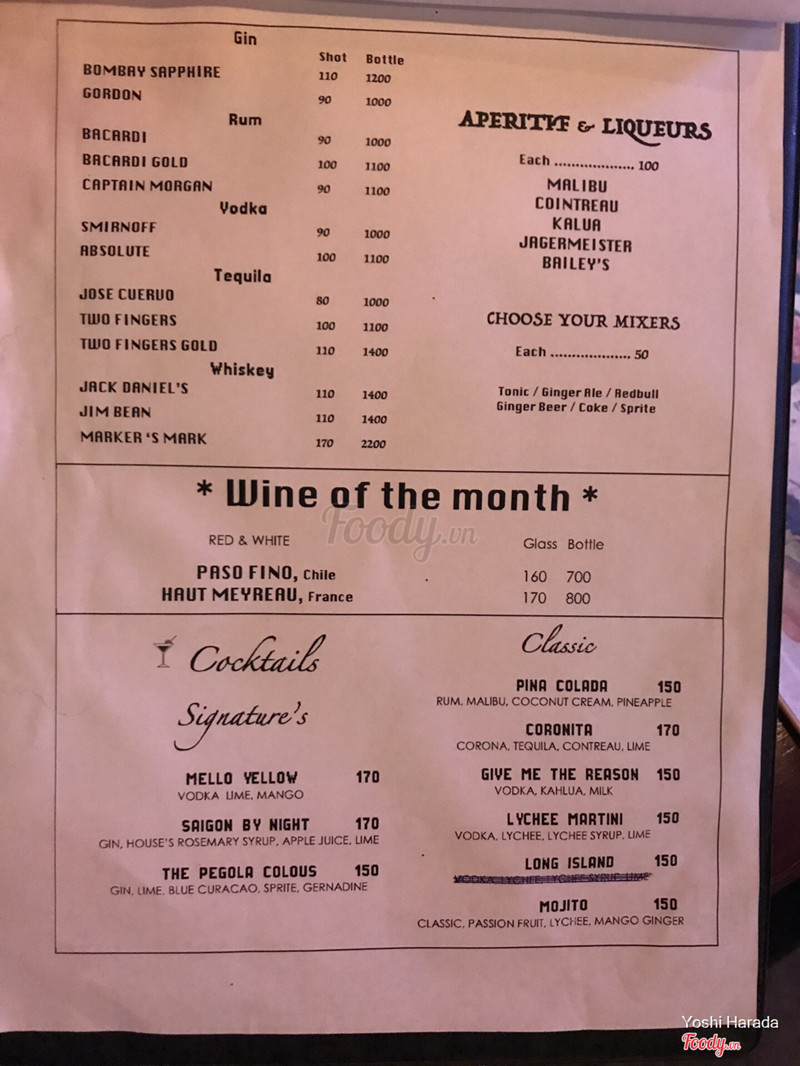 Gin
Shot Bottle
BOMBAY SAPPHIRE 110 1200
GORDON 90 1000
Rum
BACARDI 90 1000
BACARDI GOLD 100 1100
CAPTAIN MORGAN 90 1100
Vodka
SMIRNOFF 90 1000
ABSOLUTE 100 1100
Tequila
JOSE CUERVO 80 1000
TWO FINGERS 100 1100
TWO FINGERS GOLD 110 1400
Whiskey
JACK DANIEL'S 110 1400
JIM BEAN 110 1400
MARKER 'S MARK 170 2200
APERITIF & LIQUEURS
Each ................... 100
MALIBU
COINTREAU
KALUA
JAGERMEISTER
BAILEY'S
CHOOSE YOUR MIXERS
Each ................... 50
Tonic / Ginger Ale / Redbull
Ginger Beer / Coke / Sprite
* Wine of the month *
Foody.vn
RED & WHITE Glass Bottle
PASO FINO, Chile 160 700
HAUT MEYREAU, France 170 800
Cocktails
Signature's
MELLO YELLOW 170
VODKA LIME, MANGO
SAIGON BY NIGHT 170
GIN, HOUSE'S ROSEMARY SYRUP, APPLE JUICE, LIME
THE PEGOLA COLOUS 150
GIN, LIME, BLUE CURACAO, SPRITE, GERNADINE
Classic
PINA COLADA 150
RUM, MALIBU, COCONUT CREAM, PINEAPPLE
CORONITA 170
CORONA, TEQUILA, CONTREAU, LIME
GIVE ME THE REASON 150
VODKA, KAHLUA, MILK
LYCHEE MARTINI 150
VODKA, LYCHEE, LYCHEE SYRUP, LIME
LONG ISLAND 150
VODKA, LYCHEE, LYCHEE SYRUP, LIME
MOJITO 150
CLASSIC, PASSION FRUIT, LYCHEE, MANGO GINGER
Yoshi Harada
Foody.vn